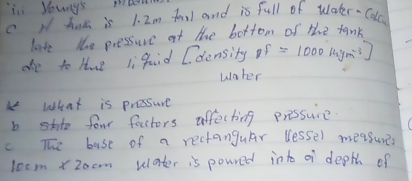 iii Youngs
c A tank is 1.2m tall and is full of water. Calcu
late the pressure at the bottom of the tank
due to the liquid [density of = 1000 kgm⁻³]
water
what is pressure
b state four factors affecting pressure.
c The base of a rectangular vessel measures
10cm x 20cm water is poured into a depth of